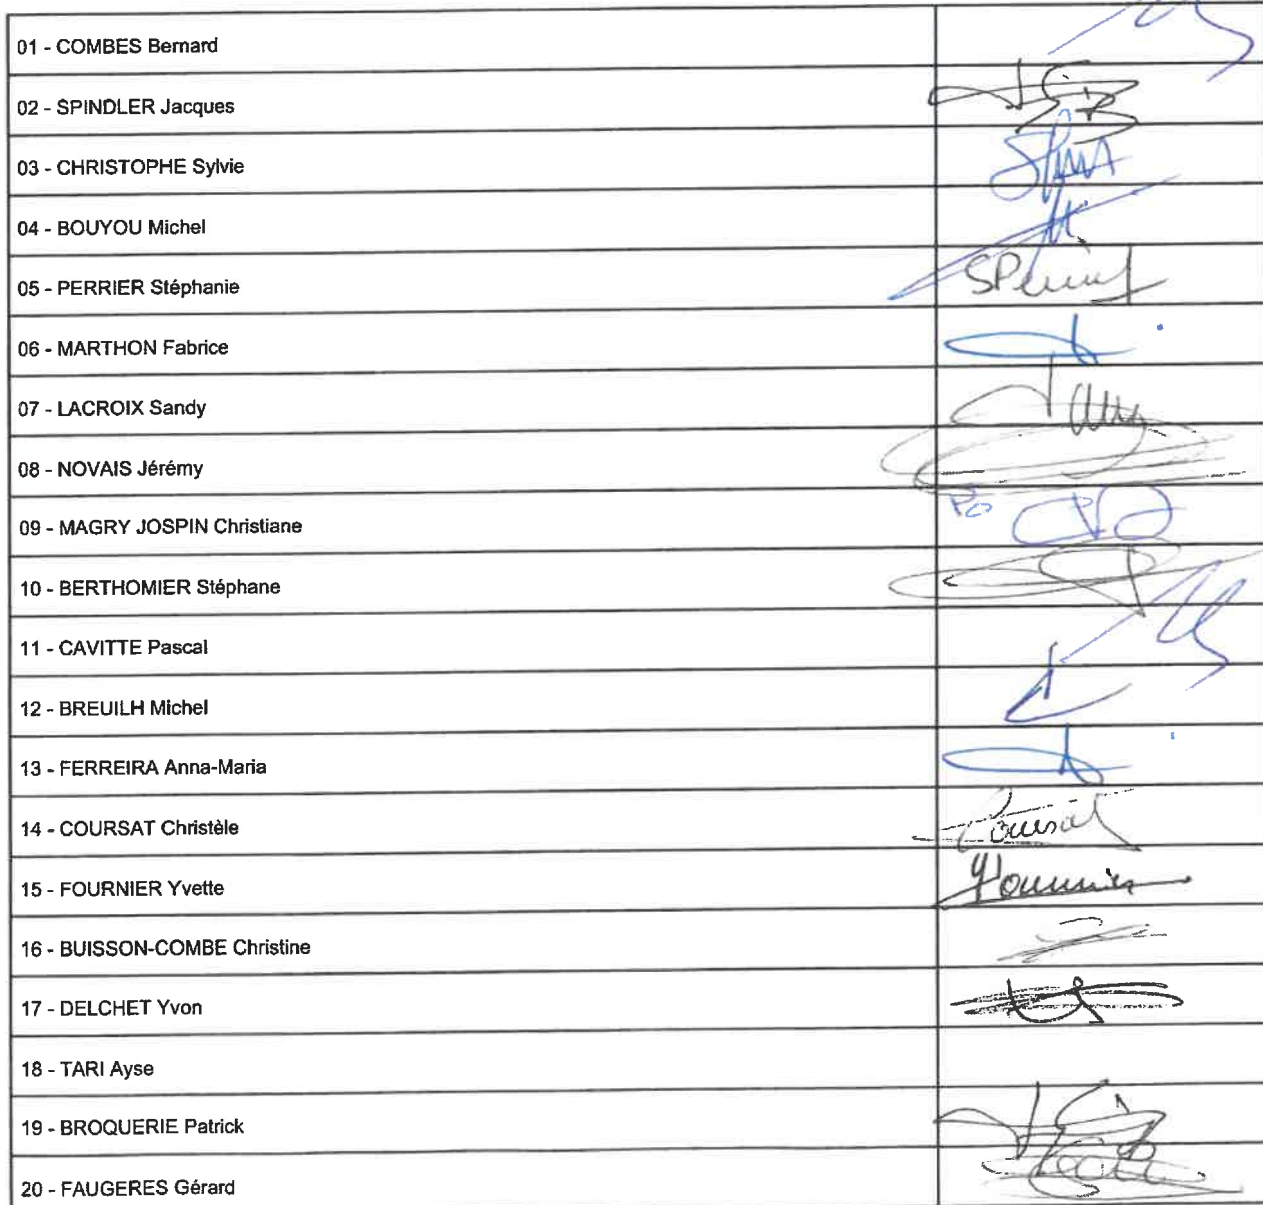 01 - COMBES Bernard
02 - SPINDLER Jacques
03 - CHRISTOPHE Sylvie
04 - BOUYOU Michel
05 - PERRIER Stéphanie
06 - MARTHON Fabrice
07 - LACROIX Sandy
08 - NOVAIS Jérémy
09 - MAGRY JOSPIN Christiane Po
10 - BERTHOMIER Stéphane
11 - CAVITTE Pascal
12 - BREUILH Michel
13 - FERREIRA Anna-Maria
14 - COURSAT Christèle Coursat
15 - FOURNIER Yvette
16 - BUISSON-COMBE Christine
17 - DELCHET Yvon
18 - TARI Ayse
19 - BROQUERIE Patrick
20 - FAUGERES Gérard